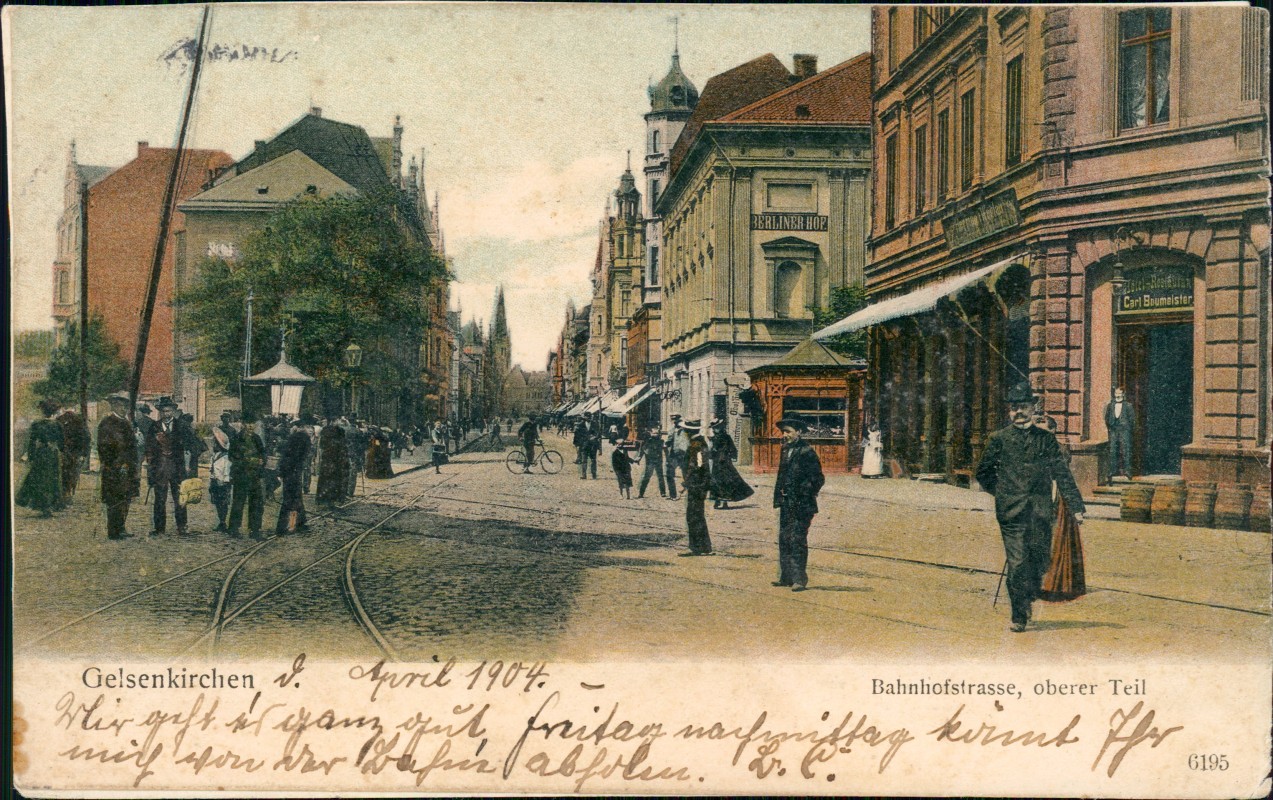 BERLINER HOF
Carl Baumeister
Gelsenkirchen d. April 1904. –
Bahnhofstrasse, oberer Teil
Mir geht es ganz gut, freitag nachmittag könnt Ihr
mich von der Bahn abholen. L. C.
6195